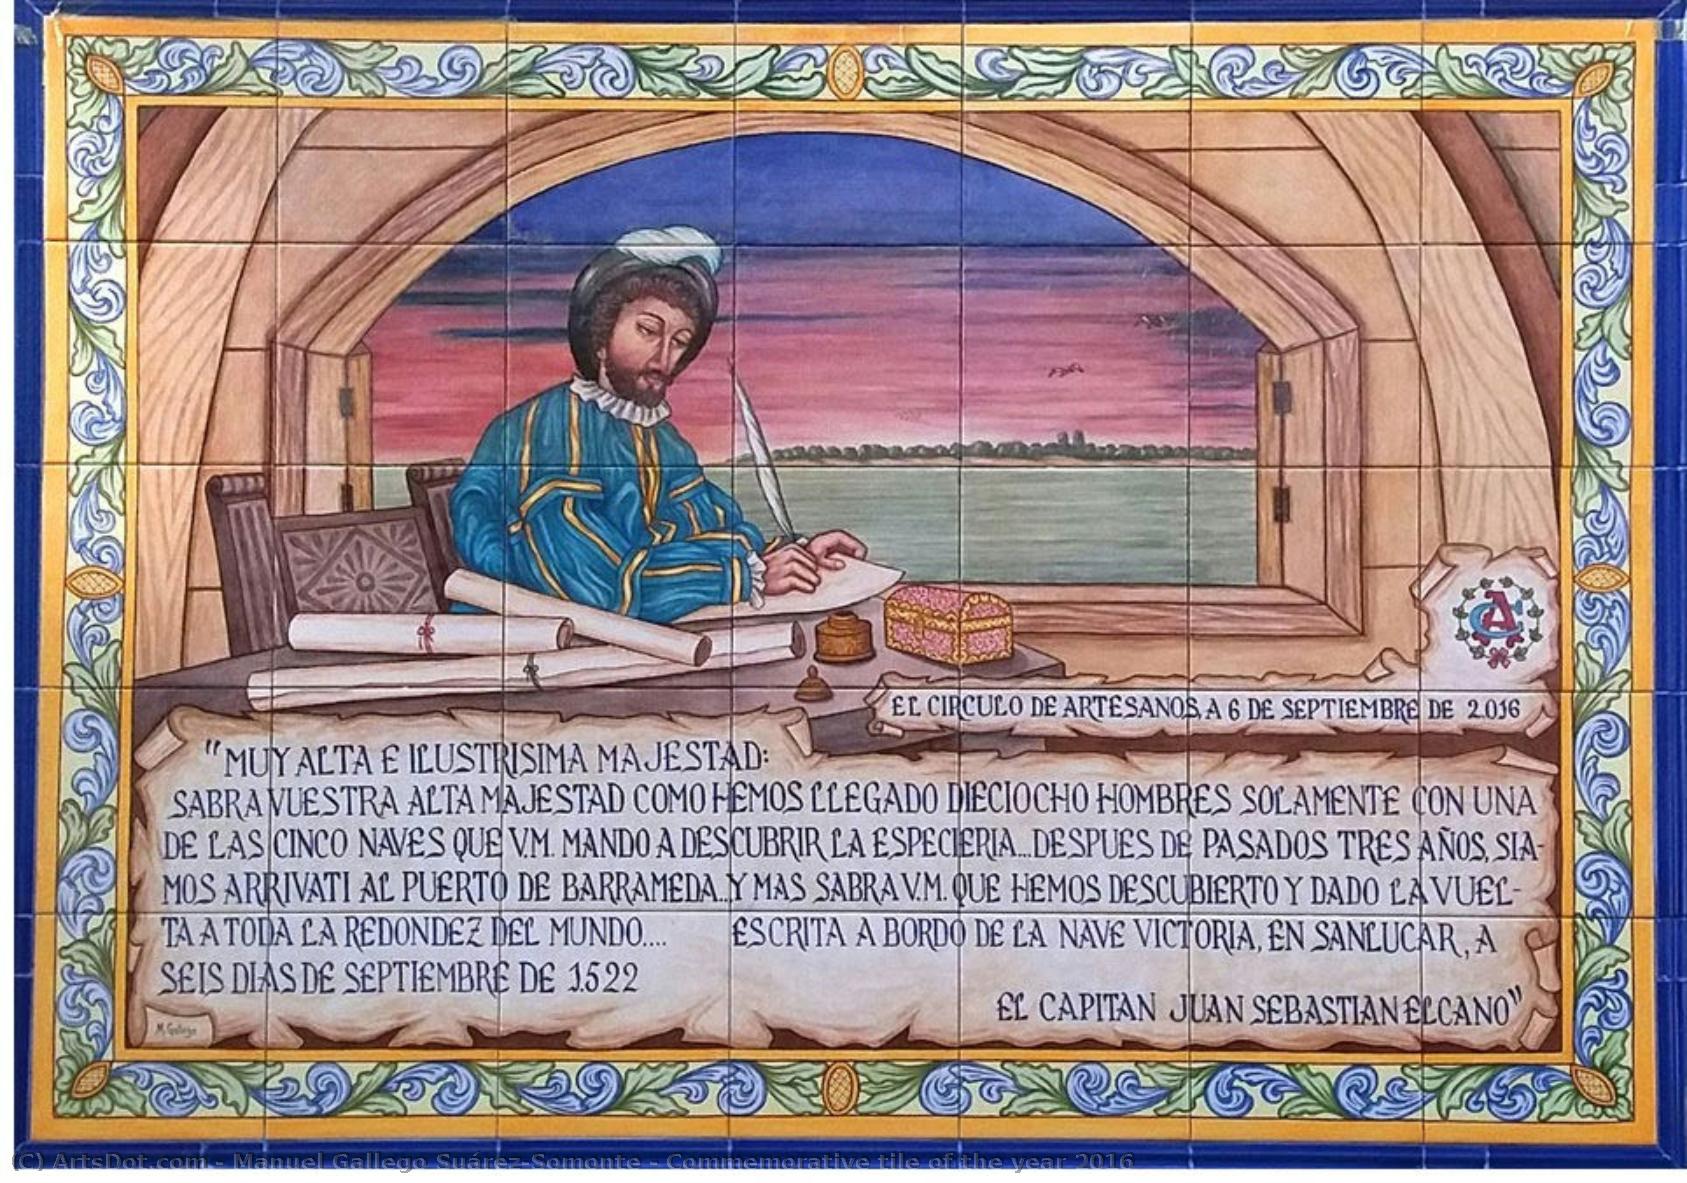 AC
EL CIRCULO DE ARTESANOS, A 6 DE SEPTIEMBRE DE 2.016
"MUY ALTA E ILUSTRISIMA MAJESTAD:
SABRA VUESTRA ALTA MAJESTAD COMO HEMOS LLEGADO DIECIOCHO HOMBRES SOLAMENTE CON UNA
DE LAS CINCO NAVES QUE V.M. MANDO A DESCUBRIR LA ESPECIERIA...DESPUES DE PASADOS TRES AÑOS, SIA-
MOS ARRIVATI AL PUERTO DE BARRAMEDA...Y MAS SABRA V.M. QUE HEMOS DESCUBIERTO Y DADO LA VUEL-
TA A TODA LA REDONDEZ DEL MUNDO.... ESCRITA A BORDO DE LA NAVE VICTORIA, EN SANLUCAR, A
SEIS DIAS DE SEPTIEMBRE DE 1.522
EL CAPITAN JUAN SEBASTIAN ELCANO"
M. Gallego
(C) ArtsDot.com - Manuel Gallego Suárez-Somonte - Commemorative tile of the year 2016